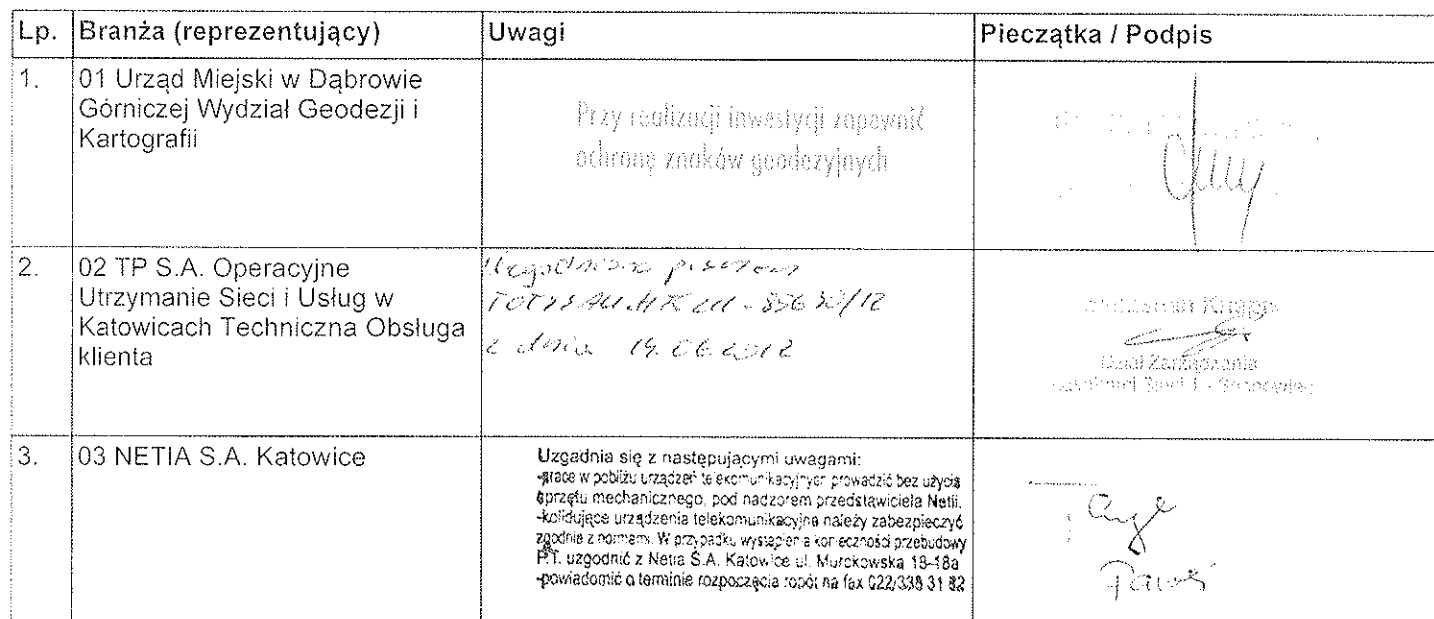 Lp. Branża (reprezentujący) Uwagi Pieczątka / Podpis
1. 01 Urząd Miejski w Dąbrowie
Górniczej Wydział Geodezji i
Kartografii
Przy realizacji inwestycji zapewnić
ochronę znaków geodezyjnych
2. 02 TP S.A. Operacyjne
Utrzymanie Sieci i Usług w
Katowicach Techniczna Obsługa
klienta
pismem
/12
z dnia 14.06.2012
Knapp
Dział Zarządzania
3. 03 NETIA S.A. Katowice
Uzgadnia się z następującymi uwagami:
-prace w pobliżu urządzeń telekomunikacyjnych prowadzić bez użycia
sprzętu mechanicznego, pod nadzorem przedstawiciela Netii.
-kolidujące urządzenia telekomunikacyjne należy zabezpieczyć
zgodnie z normami. W przypadku wystąpienia konieczności przebudowy
P.T. uzgodnić z Netia S.A. Katowice ul. Murckowska 18-18a
-powiadomić o terminie rozpoczęcia robót na fax 022/338 31 82